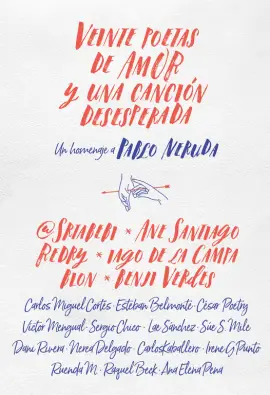 VEINTE POETAS
DE AMOR
Y UNA CANCIÓN
DESESPERADA
Un homenaje a PABLO NERUDA
@SRTABEBI * ANE SANTIAGO
REDRY * IAGO DE LA CAMPA
DION * BENJI VERDES
Carlos Miguel Cortés · Esteban Belmonte · César Poetry
Víctor Mengual · Sergio Chuco · Lae Sánchez · Sue S. Mile
Dani Rivera · Nerea Delgado · Carlos Kaballero · Irene G Punto
Ruenda M. · Raquel Beck · Ana Elena Pena